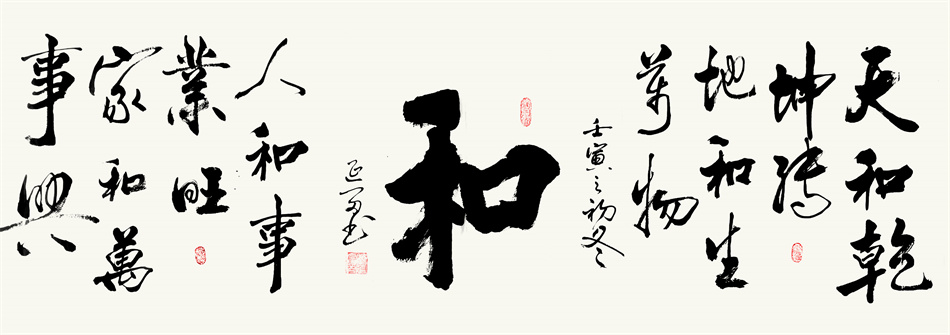 天和乾
坤转
地和生
萬物
壬寅之初冬
和
延书
人和事
業旺
家和萬
事興